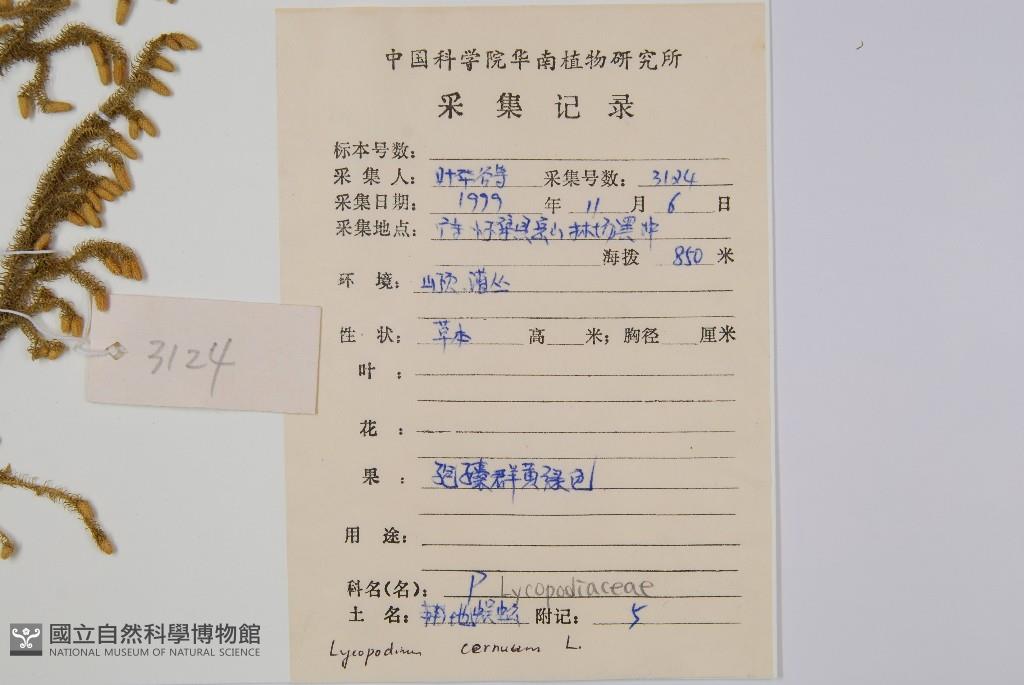 中国科学院华南植物研究所
采集记录
标本号数:
采集人: 叶华谷等 采集号数: 3124
采集日期: 1999 年 11 月 6 日
采集地点: 林场黑冲
海拨 850 米
环境: 山顶.灌丛
性状: 草本 高 米; 胸径 厘米
叶:
花:
果: 孢子囊群黄绿色
用途:
科名(名): P Lycopodiaceae
土名: 蜈蚣 附记: 5
Lycopodium cernuum L.
3124
國立自然科學博物館
NATIONAL MUSEUM OF NATURAL SCIENCE